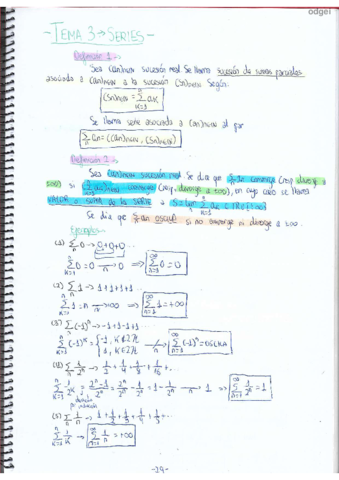 odgei
-TEMA 3→SERIES-
Definición 1.-
Sea (an)n∈N sucesión real. Se llama sucesión de sumas parciales
asociada a (an)n∈N a la sucesión (Sn)n∈N según:
(Sn)n∈N = Σ ak
Se llama serie asociada a (an)n∈N al par
Σ an = ((an)n∈N, (Sn)n∈N)
Definición 2.-
Sea (an)n∈N sucesión real. Se dice que Σ an converge (resp. diverge a
±∞) si (Σ ak)n∈N converge (resp. diverge a ±∞), en cuyo caso se llama
VALOR o SUMA de la SERIE a S = lim Σ ak ∈ R∪{±∞}
Se dice que Σ an oscila si no converge ni diverge a ±∞.
Ejemplos-
(1) Σ 0 → 0+0+0...
Σ 0 = 0 → 0 ⟹ Σ 0 = 0
(2) Σ 1 → 1+1+1+1...
Σ 1 = n → +∞ ⟹ Σ 1 = +∞
(3) Σ (-1)^n → -1+1-1+1
Σ (-1)^k = {-1, k∉2Z
1, k∈2Z ⟹ Σ (-1)^n = OSCILA
(4) Σ 1/2^n → 1/2 + 1/4 + 1/8 + 1/16 + ...
Σ 1/2^k = (2^n - 1)/2^n = 2^n/2^n - 1/2^n = 1 - 1/2^n → 1 ⟹ Σ 1/2^n = 1
por inducción
(5) Σ 1/n → 1 + 1/2 + 1/3 + 1/4 + 1/5 + ...
Σ 1/k → Σ 1/n = +∞